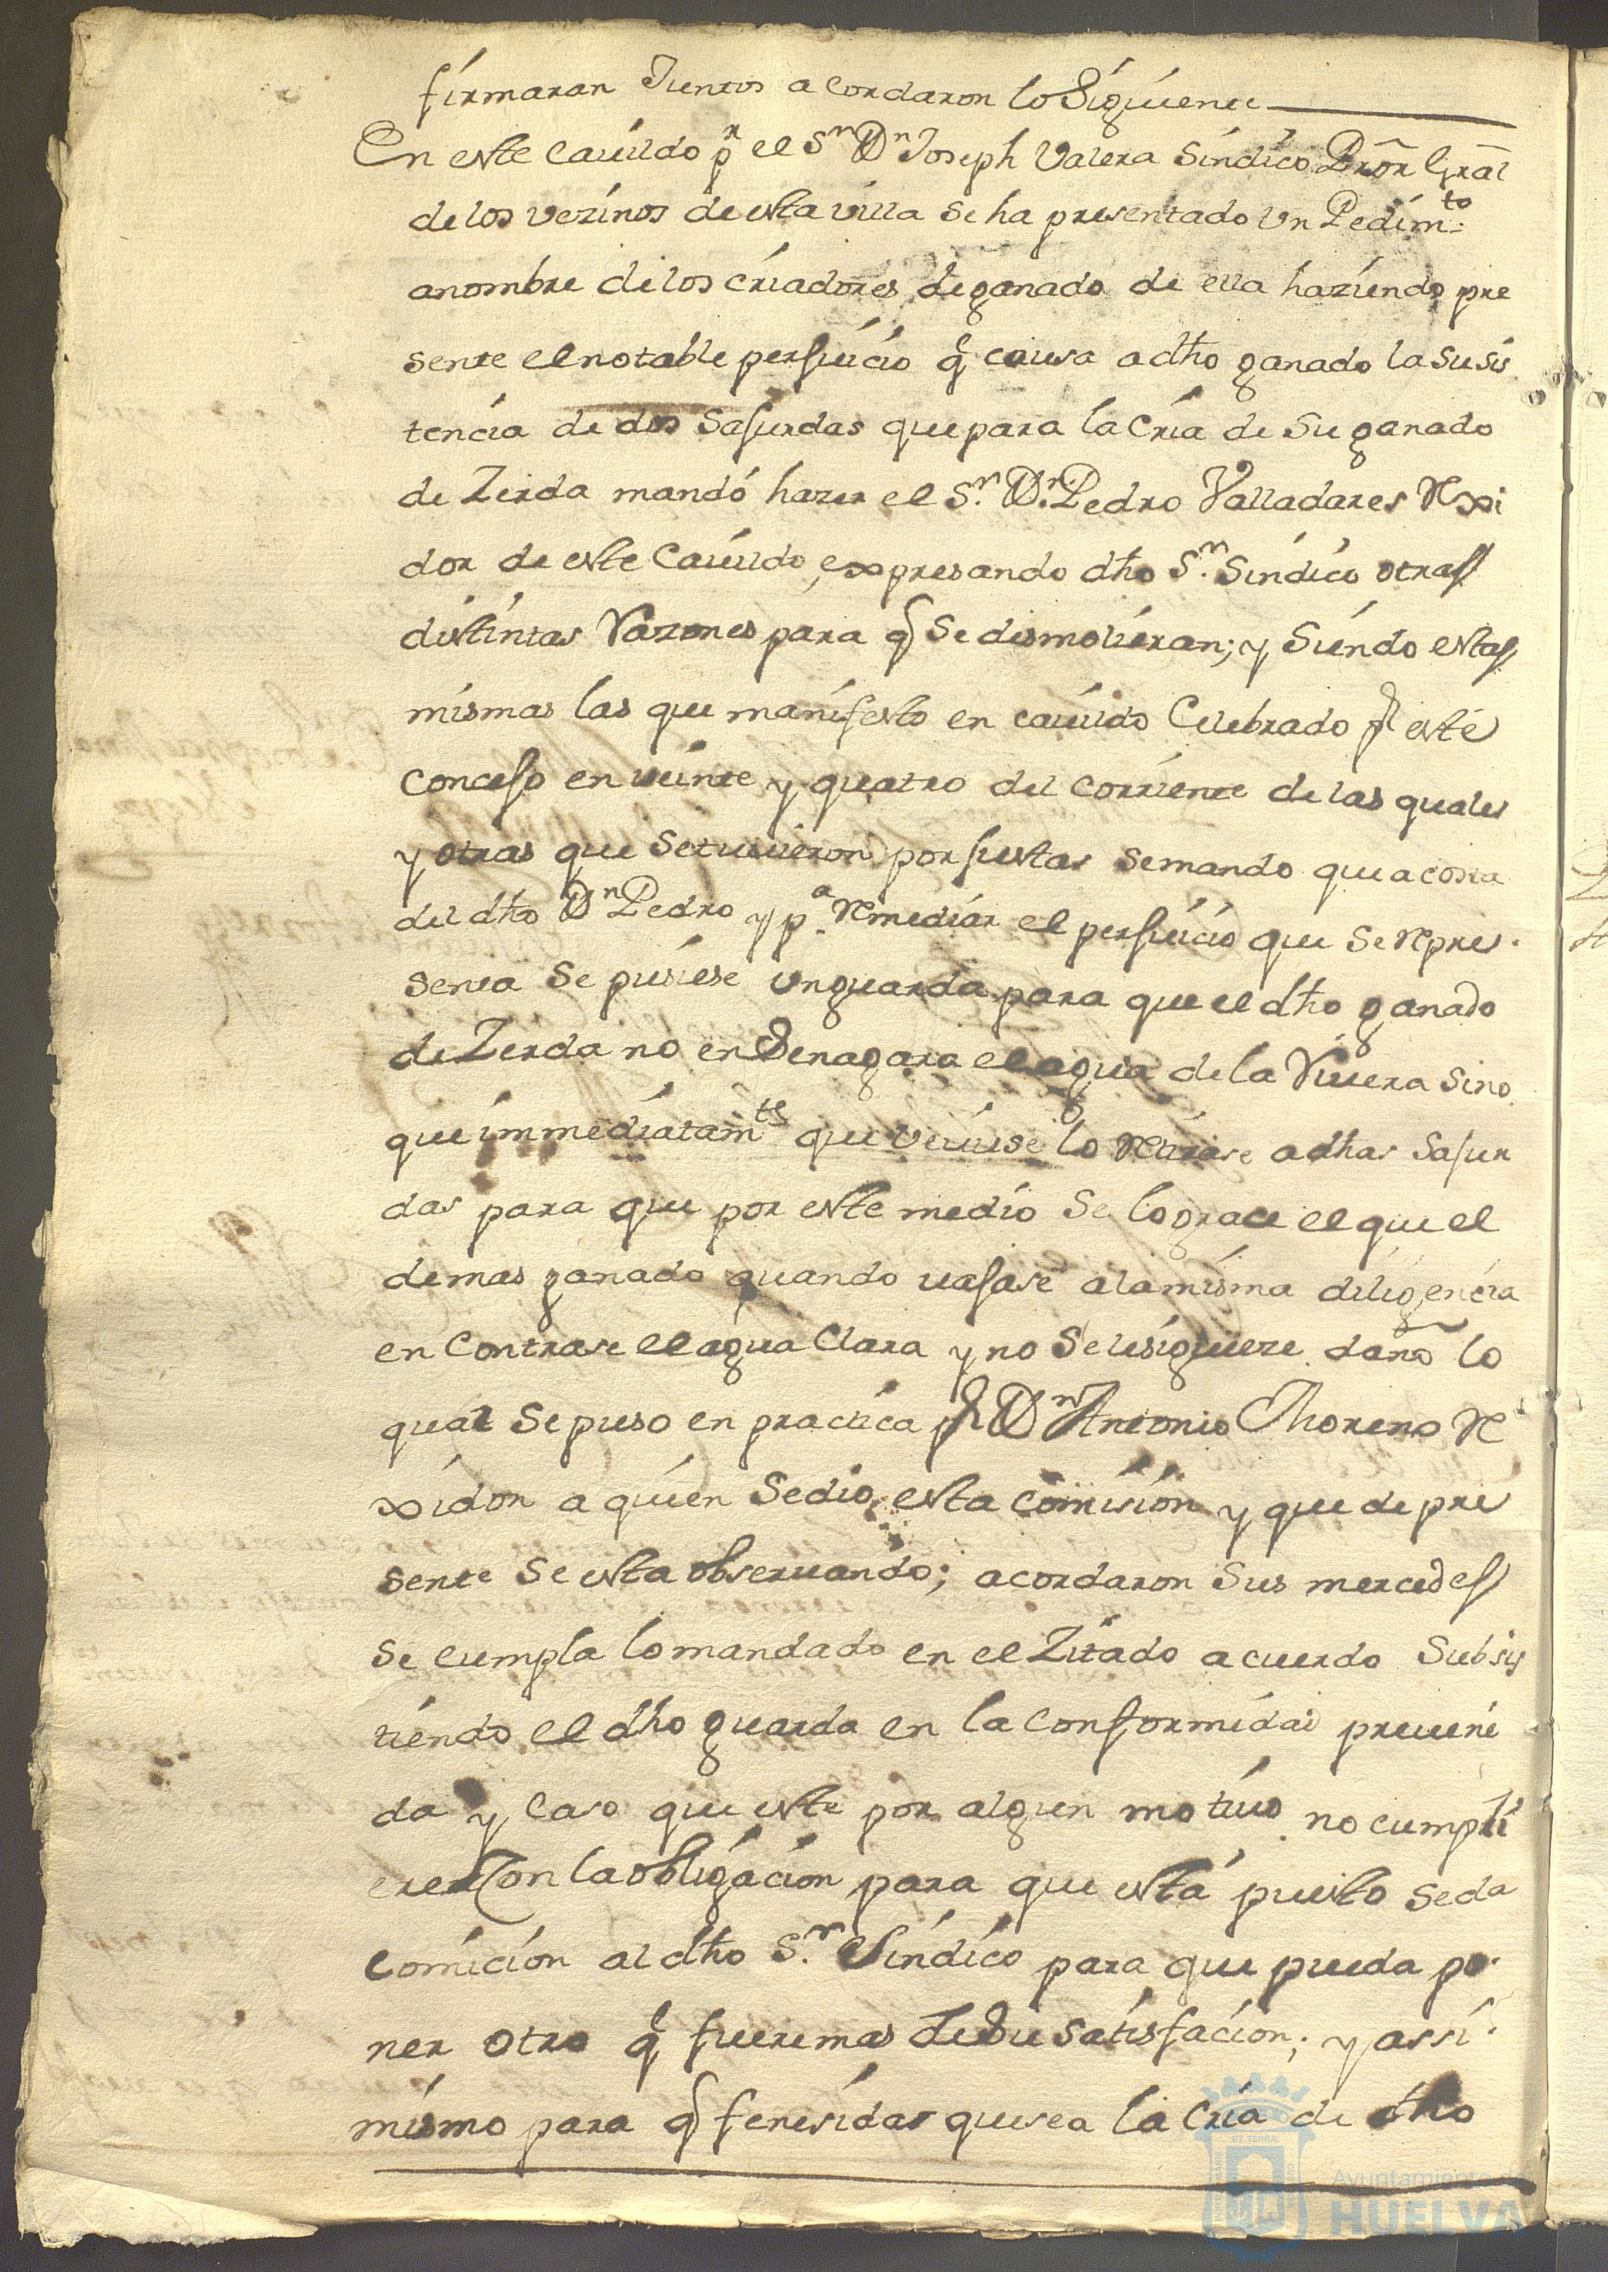 firmaran Juntos acordaron lo Siguiente
En este Cauildo pr el Sn Dn Joseph Valera Sindico Pror Gral
de los vezinos de esta villa se ha presentado Un Pedimto
a nombre de los criadores de ganado de ella haziendo pre
sente el notable perjuicio q causa a dho ganado la susis
tencia de dos Sajurdas que para la Cria de Su ganado
de Zerda mandó hazer el Sn. Dn. Pedro Valladares Rexi
dor de este Cauildo, expresando dho Sn. Sindico otras
distintas Razones para q Se demolieran; y Siendo estas
mismas las que manifesto en cauildo Celebrado pr este
Concejo en veinte y quatro del corriente de las quales
y otras que Se tuuieron por justas se mando que a costa
del dho Dn Pedro y pa. Remediar el perjuicio que Se Repre
senta Se pusiese un guarda para que el dho ganado
de Zerda no enSenagara el agua de la Riuera sino
que immediatamte que veuiese lo Retirase a dhas Sajur
das para que por este medio Se lograce el que el
demas ganado quando vajase a la misma diligencia
en Contrase el agua Clara y no Se le siguiere daño lo
qual Se puso en practica pr Dn Antonio Moreno Re
xidor a quien Se dio esta comision y que de pre
sente Se esta obseruando; acordaron Sus mercedes
Se cumpla lo mandado en el Zitado acuerdo Subsis
tiendo el dho guarda en la conformidad preueni
da y Caso que este por algun motiuo no cumpli
ere Con la obligacion para que está puesto se da
Comicion al dho Sr. Sindico para que pueda po
ner otro q fuere mas de Su Satisfacion; y assi
mismo para q fenesida que sea la Cria de dho
Ayuntamiento de
HUELVA